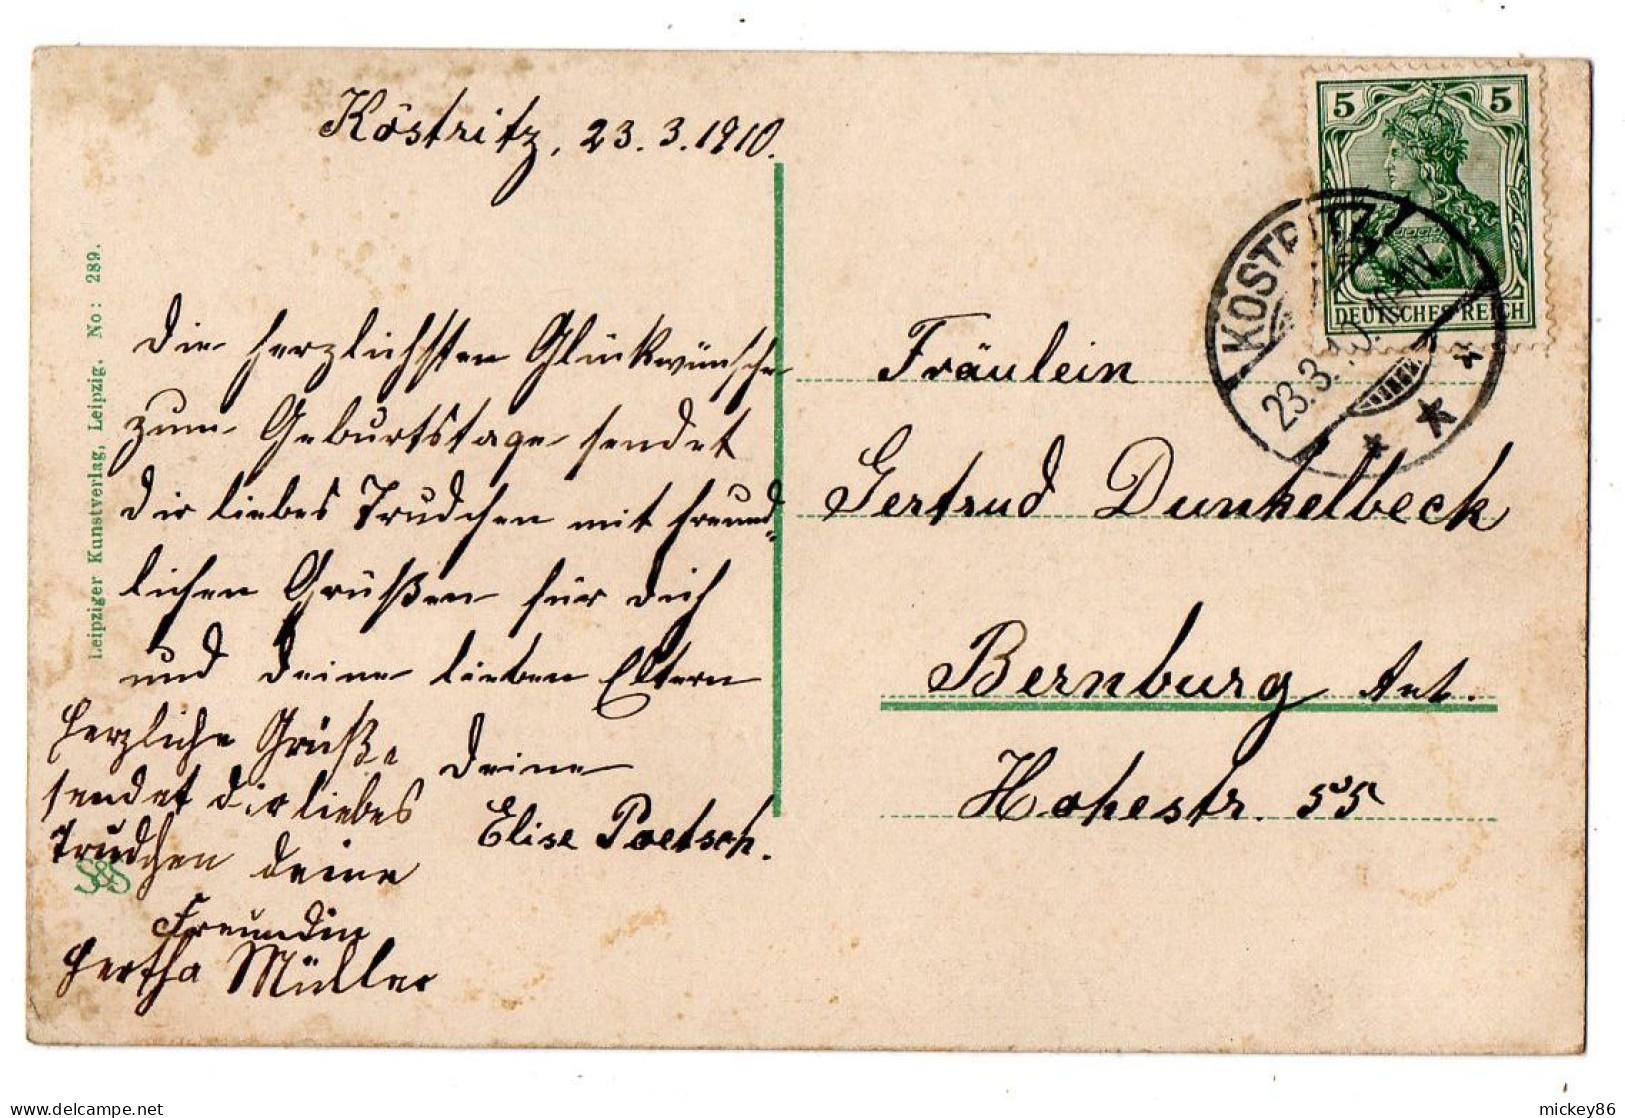 Köstritz, 23.3.1910.
Die herzlichsten Glückwünsche
zum Geburtstage sendet
dir liebes Trudchen mit freund„
lichen Grüßen für dich
und deine lieben Eltern
deine
Elise Poetsch.
Herzliche Grüße
sendet dir liebes
Trudchen deine
Freundin
Hertha Müller
Leipziger Kunstverlag, Leipzig. No: 289.
5 5
DEUTSCHES REICH
KÖSTRITZ
23.3.10.
Fräulein
Gertrud Dunkelbeck
Bernburg Ant.
Hohestr. 55
mickey86